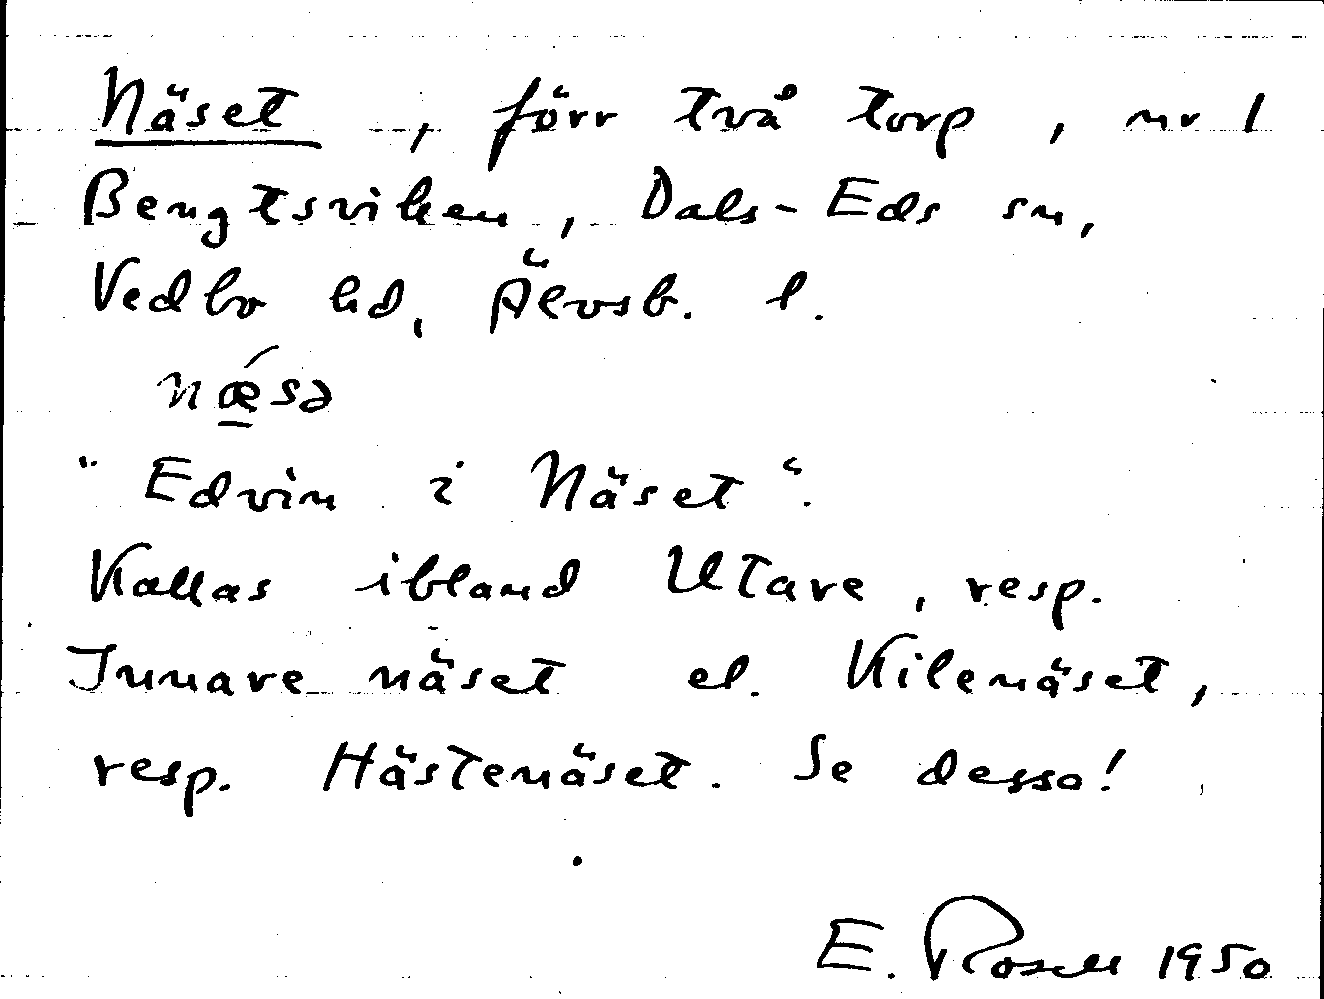 Näset, förr två torp, nr 1
Bengtsviken, Dals-Eds sn,
Vedbo hd, Älvsb. l.
nǽ̱sə
"Edvin i Näset".
Kallas ibland Utare, resp.
Innare näset el. Kilenäset,
resp. Hästenäset. Se dessa!
E. Rosell 1950